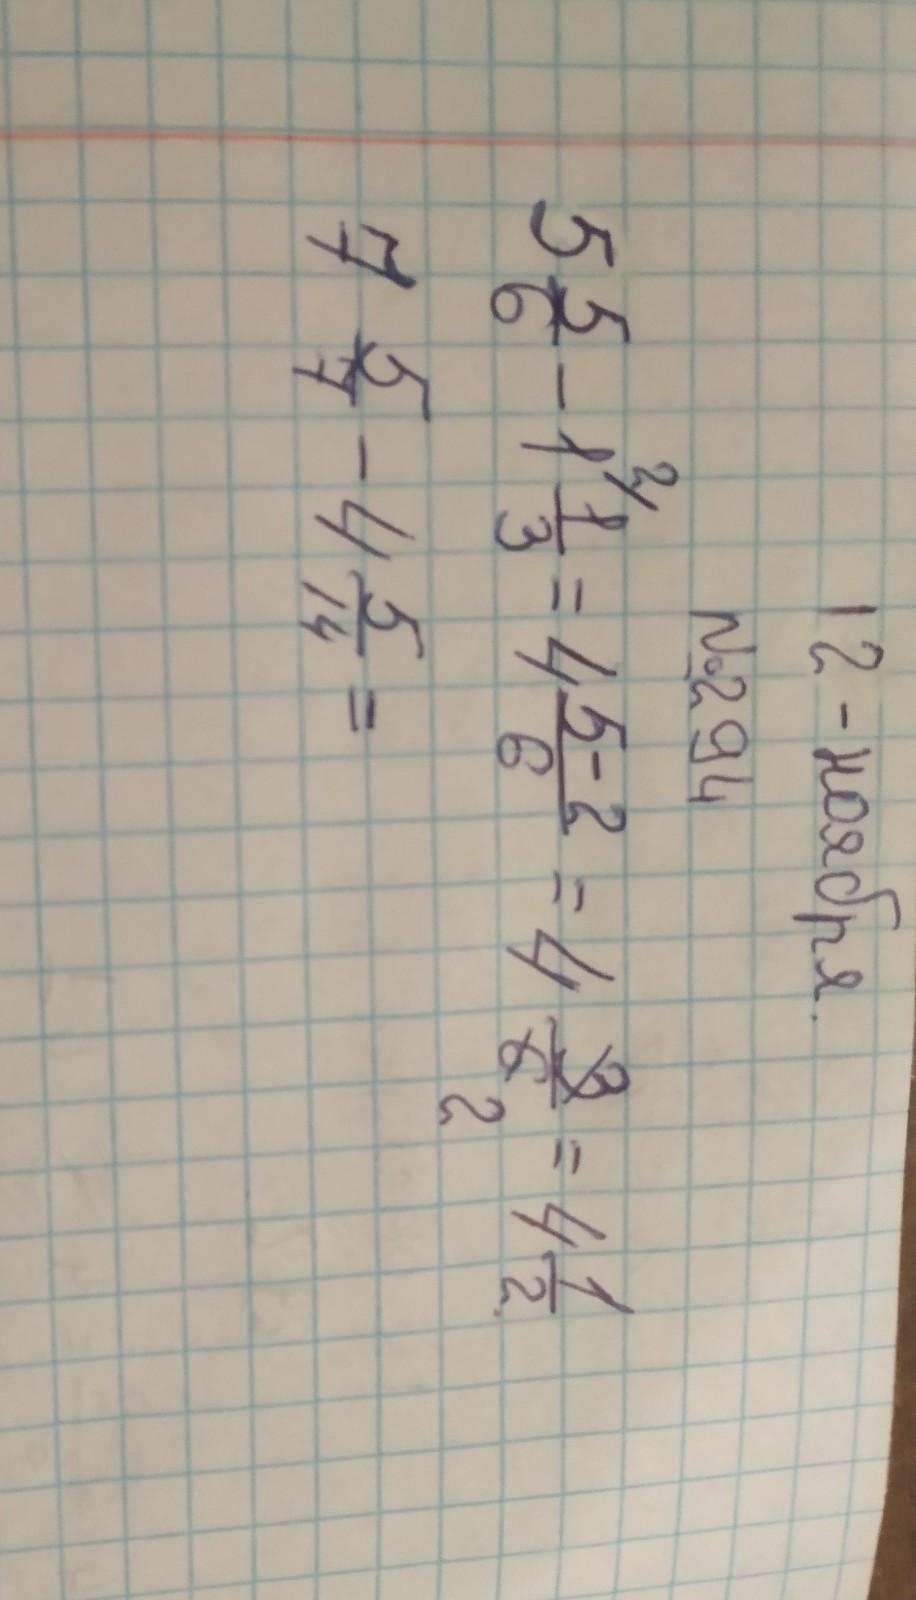 12-ноября.
№294
5 5/6 - 1 1/3 ²⁾ = 4 5-2/6 = 4 3/6 2 = 4 1/2
7 5/7 - 4 5/14 =